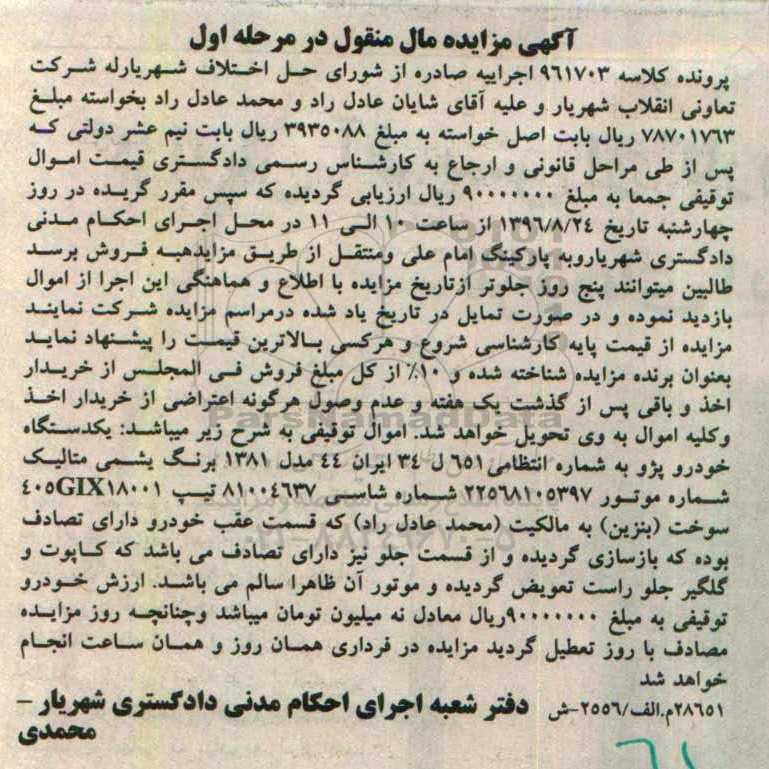 آگهی مزایده مال منقول در مرحله اول
پرونده کلاسه ۹۶۱۷۰۳ اجراییه صادره از شورای حل اختلاف شهریارله شرکت
تعاونی انقلاب شهریار و علیه آقای شایان عادل راد و محمد عادل راد بخواسته مبلغ
۷۸۷۰۱۷۶۳ ریال بابت اصل خواسته به مبلغ ۳۹۳۵۰۸۸ ریال بابت نیم عشر دولتی که
پس از طی مراحل قانونی و ارجاع به کارشناس رسمی دادگستری قیمت اموال
توقیفی جمعا به مبلغ ۹۰۰۰۰۰۰۰ ریال ارزیابی گردیده که سپس مقرر گریده در روز
چهارشنبه تاریخ ۱۳۹۶/۸/۲۴ از ساعت ۱۰ الی ۱۱ در محل اجرای احکام مدنی
دادگستری شهریاروبه پارکینگ امام علی ومنتقل از طریق مزایدهبه فروش برسد
طالبین میتوانند پنج روز جلوتر ازتاریخ مزایده با اطلاع و هماهنگی این اجرا از اموال
بازدید نموده و در صورت تمایل در تاریخ یاد شده درمراسم مزایده شرکت نمایند
مزایده از قیمت پایه کارشناسی شروع و هرکسی بالاترین قیمت را پیشنهاد نماید
بعنوان برنده مزایده شناخته شده و ۱۰٪ از کل مبلغ فروش فی المجلس از خریدار
اخذ و باقی پس از گذشت یک هفته و عدم وصول هرگونه اعتراضی از خریدار اخذ
وکلیه اموال به وی تحویل خواهد شد. اموال توقیفی به شرح زیر میباشد: یکدستگاه
خودرو پژو به شماره انتظامی ۶۵۱ ل ۳۴ ایران ۴۴ مدل ۱۳۸۱ برنگ یشمی متالیک
شماره موتور ۲۲۵۶۸۱۰۵۳۹۷ شماره شاسی ۸۱۰۰۴۶۳۷ تیپ ۴۰۵GIX۱۸۰۰۱
سوخت (بنزین) به مالکیت (محمد عادل راد) که قسمت عقب خودرو دارای تصادف
بوده که بازسازی گردیده و از قسمت جلو نیز دارای تصادف می باشد که کاپوت و
گلگیر جلو راست تعویض گردیده و موتور آن ظاهرا سالم می باشد. ارزش خودرو
توقیفی به مبلغ ۹۰۰۰۰۰۰۰ریال معادل نه میلیون تومان میباشد وچنانچه روز مزایده
مصادف با روز تعطیل گردید مزایده در فرداری همان روز و همان ساعت انجام
خواهد شد
۲۸۶۵۱م.الف/۲۵۵۶-ش دفتر شعبه اجرای احکام مدنی دادگستری شهریار –
محمدی
ParsNamadData